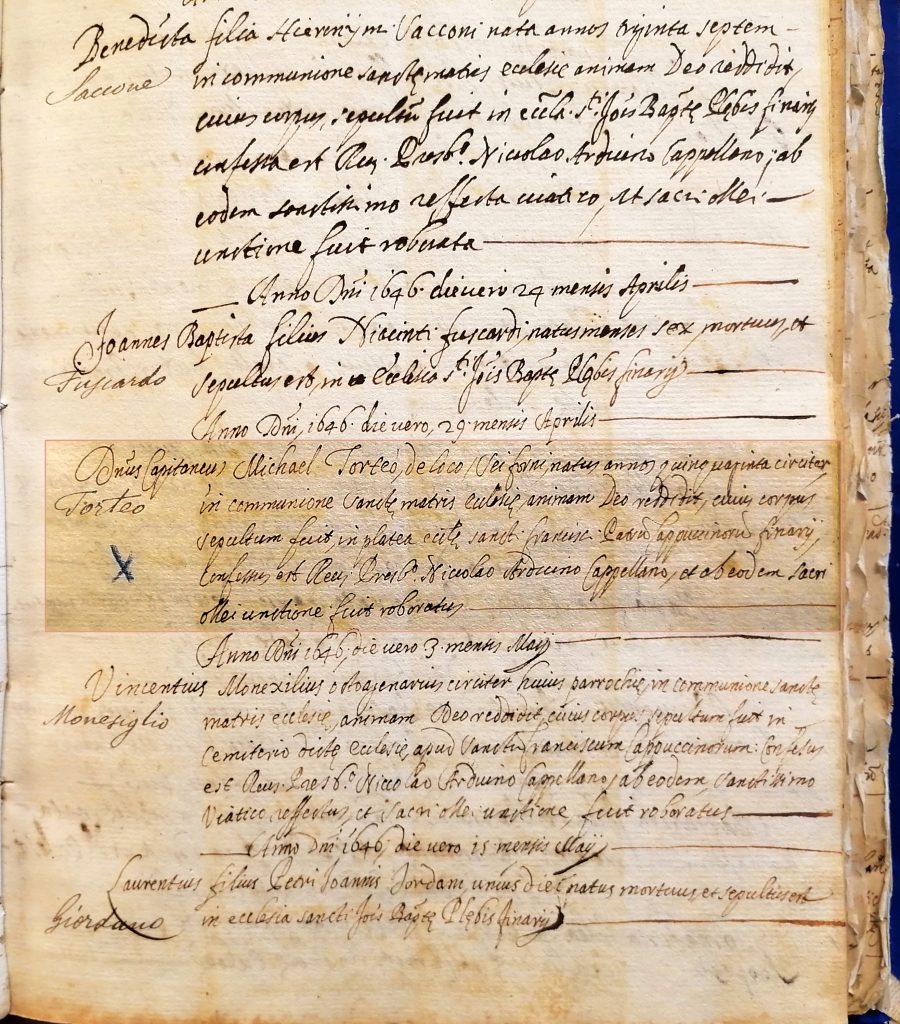 Benedicta filia Hieronym: Sacconi nata annos triginta septem
Saccone
in communione sanctę matris ecclesię animam Deo reddidit,
cuius corpus, sepultũ fuit in eccla. Sti. Jois Baptę Plębis finarij
confessa est Reu. Presbo. Nicolao Arduino Cappellano, ab
eodem sanctissimo reffecta viatico, et sacri ollei
unctione fuit roborata
Anno Dñi 1646. die vero 24 mensis Aprilis
Joannes Baptista filius fuscardi natus menses sex mortuus, et
Fuscardo
sepultus est, in Ecclesia Sti. Jois Baptę Plębis finarij
Anno Dñi, 1646. die vero, 29. mensis Aprilis
Dñus Capitaneus Michael Torteo, de loco natus annos quinquaginta circiter
Torteo
in communione Sanctę matris eclesię, animam Deo reddidit, cuius corpus
sepultum fuit, in platea ecclę sancti francisci Patrũ Cappuccinorũ finarij,
X
Confessus est Reu. Presbo. Niccolao Arduino Cappellano, et ab eodem sacri
ollei unctione fuit roboratus
Anno Dñi 1646, die vero 3 mensis Maij
Vincentius Monexilius octoagenarius circiter huius parrochię, in communione sanctę
Monesiglio
matris ecclesię, animam Deo reddidit, cuius corpus sepultum fuit in
Cemiterio dictę Ecclesię, apud Sanctũ franciscum Cappuccinorum. Confessus
est Reu. Presbo. Niccolao Arduino Cappellano, ab eodem, Sanctissimo
Viatico, reffectus, et sacri ollei unctione, fuit roboratus
Anno Dñi 1646, die vero 15 mensis Maij
Laurentius filius Petri Joannis Jordani, unius diei natus mortuus, et sepultus est
Giordano
in ecclesia sancti Jois Baptę Plębis finarij